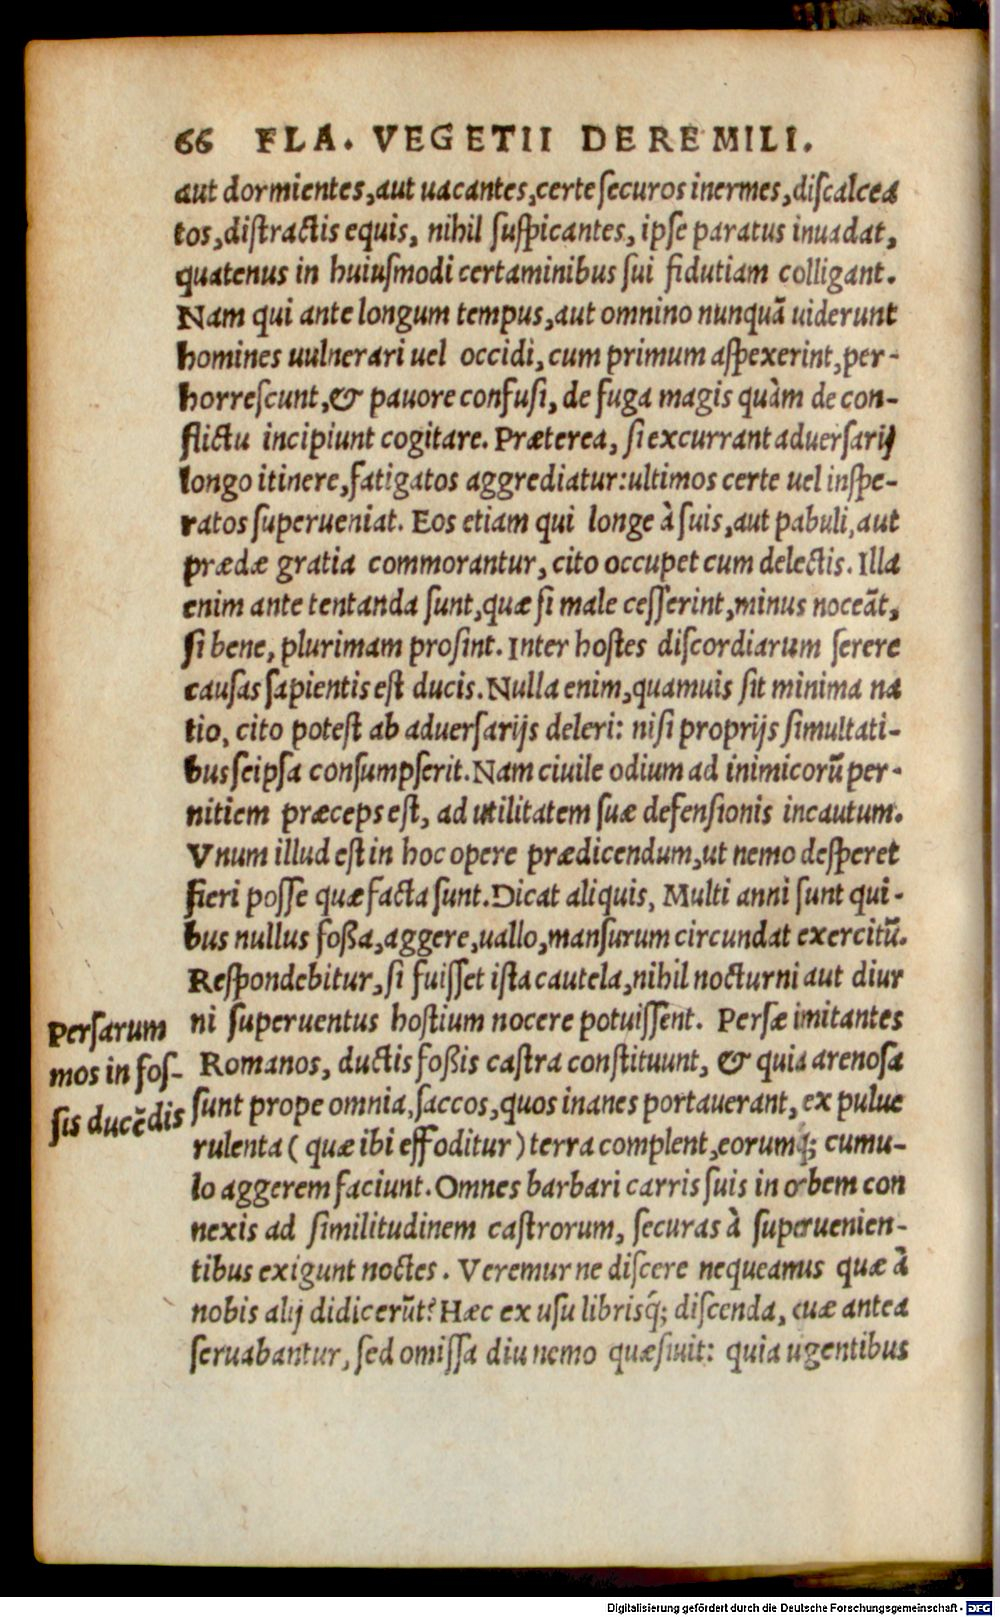 66 FLA. VEGETII DE RE MILI.
aut dormientes, aut uacantes, certe securos inermes, discalcea
tos, distractis equis, nihil suspicantes, ipse paratus inuadat,
quatenus in huiusmodi certaminibus sui fidutiam colligant.
Nam qui ante longum tempus, aut omnino nunquā uiderunt
homines uulnerari uel occidi, cum primum aspexerint, per-
horrescunt, & pauore confusi, de fuga magis quàm de con-
flictu incipiunt cogitare. Præterea, si excurrant aduersarij
longo itinere, fatigatos aggrediatur: ultimos certe uel inspe-
ratos superueniat. Eos etiam qui longe à suis, aut pabuli, aut
prædæ gratia commorantur, cito occupet cum delectis. Illa
enim ante tentanda sunt, quæ si male cesserint, minus noceāt,
si bene, plurimam prosint. Inter hostes discordiarum serere
causas sapientis est ducis. Nulla enim, quamuis sit minima na
tio, cito potest ab aduersarijs deleri: nisi proprijs simultati-
bus seipsa consumpserit. Nam ciuile odium ad inimicorū per-
nitiem præceps est, ad utilitatem suæ defensionis incautum.
Vnum illud est in hoc opere prædicendum, ut nemo desperet
fieri posse quæ facta sunt. Dicat aliquis, Multi anni sunt qui-
bus nullus foßa, aggere, uallo, mansurum circundat exercitū.
Respondebitur, si fuisset ista cautela, nihil nocturni aut diur
ni superuentus hostium nocere potuissent. Persæ imitantes
Persarum
mos in fos-
sis ducēdis
Romanos, ductis foßis castra constituunt, & quia arenosa
sunt prope omnia, saccos, quos inanes portauerant, ex pulue
rulenta ( quæ ibi effoditur ) terra complent, eorumq́; cumu-
lo aggerem faciunt. Omnes barbari carris suis in orbem con
nexis ad similitudinem castrorum, securas à superuenien-
tibus exigunt noctes. Veremur ne discere nequeamus quæ à
nobis alij didicerūt? Hæc ex usu librisq́; discenda, quæ antea
seruabantur, sed omissa diu nemo quæsiuit: quia uigentibus
Digitalisierung gefördert durch die Deutsche Forschungsgemeinschaft - DFG